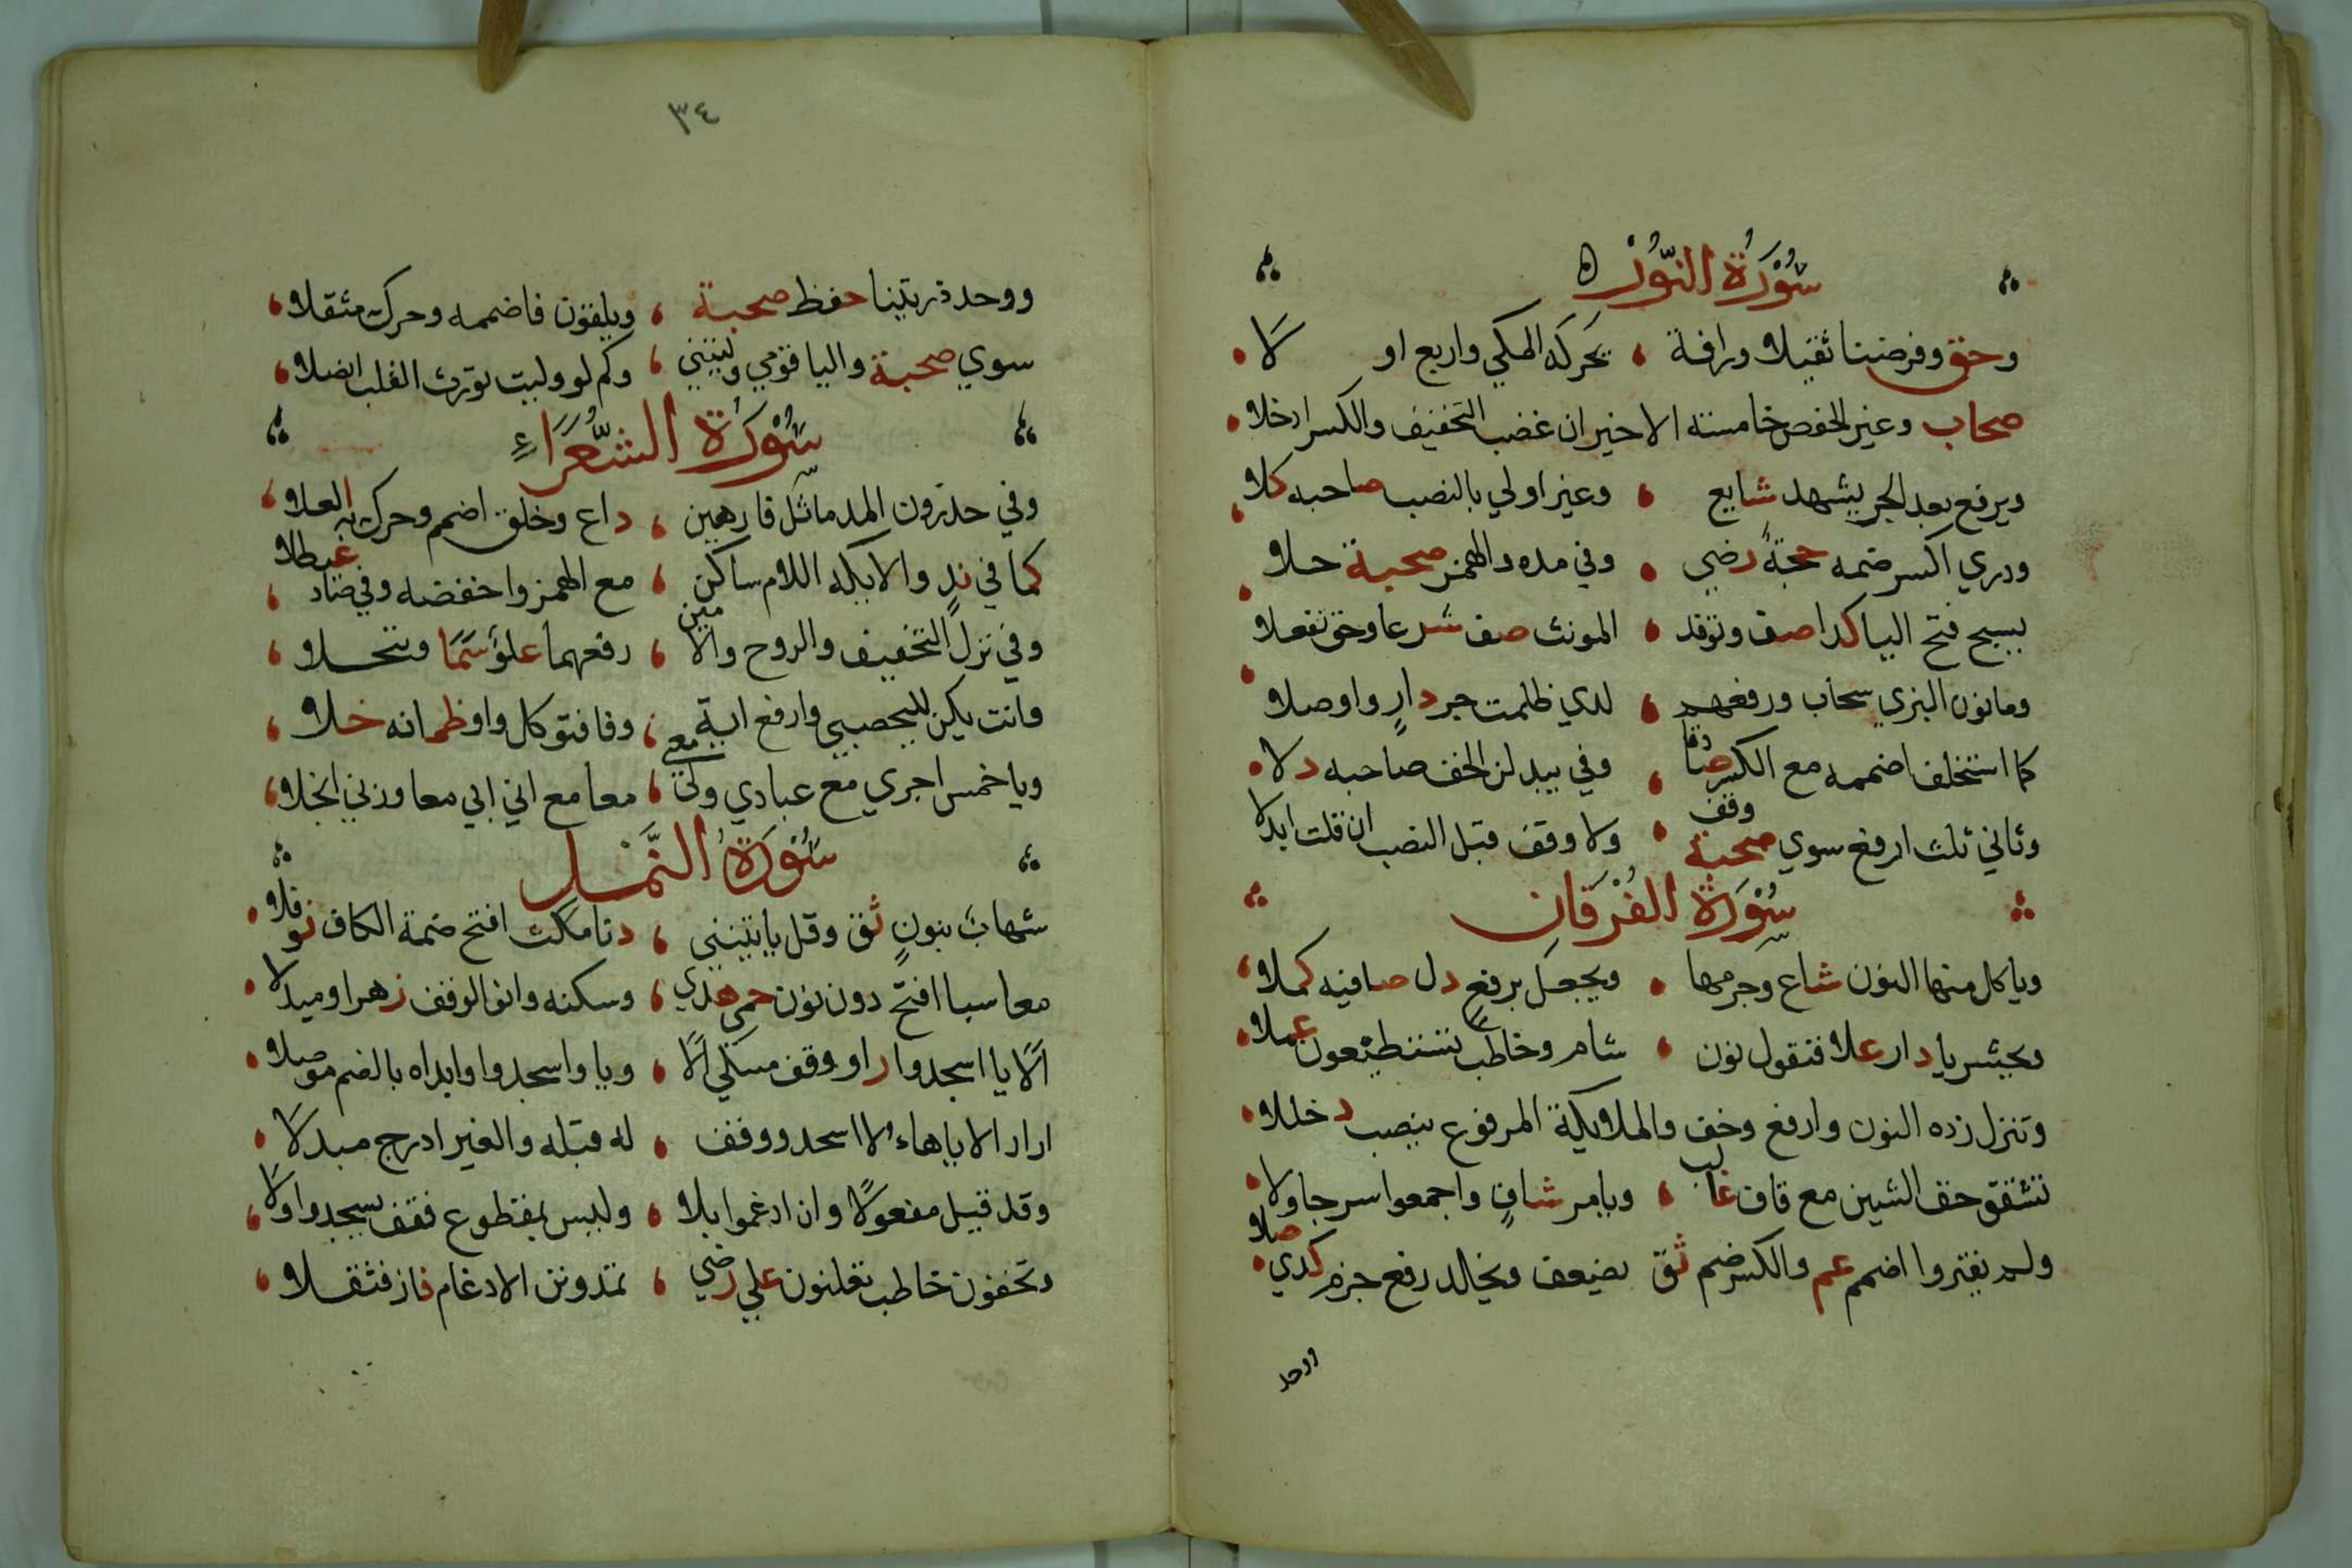 سُوْرَةُ النُّوْرِ ه
وحق وفرضنا ثقيلا ورافة ، يحركه المكي واربع او لَا
صحاب وغير الحفص خامسة الاخير ان غضب التخفيف والكسر ادخلا
ويرفع بعد الجر يشهد شايع ، وغير اولي بالنصب صاحبه كلا
ودري اكسر ضمه حجةً رضي ، وفي مده والهمز صحبة حلا
يسبح فتح اليا كدا صف وتوقد ، المونث صف شرعا وحق تفعلا
ومانون البزي سحاب ورفعهم ، لدي ظلمت جر دارٍ واوصلا
كما استخلف اضممه مع الكسر صادقا ، وفي يبدلن الخف صاحبه دلا
وثاني ثلث ارفع سوي صحبة وقف ، ولا وقف قبل النصب ان قلت ابدلا
سُوْرَةُ الفُرْقَانِ
وياكل منها النون شاع وجزمها ، ويجعل برفعٍ دل صافيه كملا
ونحشر يا دار علا فنقول نون ، شام وخاطب تستطيعون عملا
وننزل زده النون وارفع وخف والملايكة المرفوع ينصب دخللا
تشقق خف الشين مع قاف غالب ، ويامر شافٍ واجمعوا سرجا ولا
ولم يقتروا اضمم عم والكسر ضم ثق يضعف ويخلد رفع جزم كذي صلا
ووحد
٣٤
ووحد ذريتنا حفظ صحبة ، ويلقون فاضممه وحرك مثقلا
سوي صحبة واليا قومي وليتني ، وكم لو وليت تورث القلب انصلا
سُوْرَةُ الشُّعَرَاءِ
وفي حذرون المد ماثل فارهين ، داع وخلق اضمم وحرك به العلا
كما في ندٍ والايكه اللام ساكن ، مع الهمز واخفضه وفي صاد غيطلا
وفي نزل التخفيف والروح والامين ، رفعهما علوٌ سَمَا وتبجلا
وانث يكن لليحصبي وارفع اية ، وفا فتوكل واو ظمانه حلا
ويا خمس اجري مع عبادي ولي معي ، معا مع اني ابي معا وربي انجلا
سُوْرَةُ النَّمْل
شهاب بنونٍ ثق وقل ياتينني ، دنا مكث افتح ضمة الكاف نوفلا
معا سبا افتح دون نون حمي هدي ، وسكنه وانو الوقف زهرا ومندلا
الَا يا اسجدوا راو وقف مبتلي الَا ، ويا واسجدوا وابداه بالضم موصلا
اراد الا يا هاءولا اسجدوا وقف ، له قبله والغير ادرج مبدلَا
وقد قيل مفعولًا وان ادغموا بلا ، وليس بمقطوع فقف يسجدوا ولا
وتخفون خاطب تعلنون علي رضي ، تمدونن الادغام فاز فثقلا